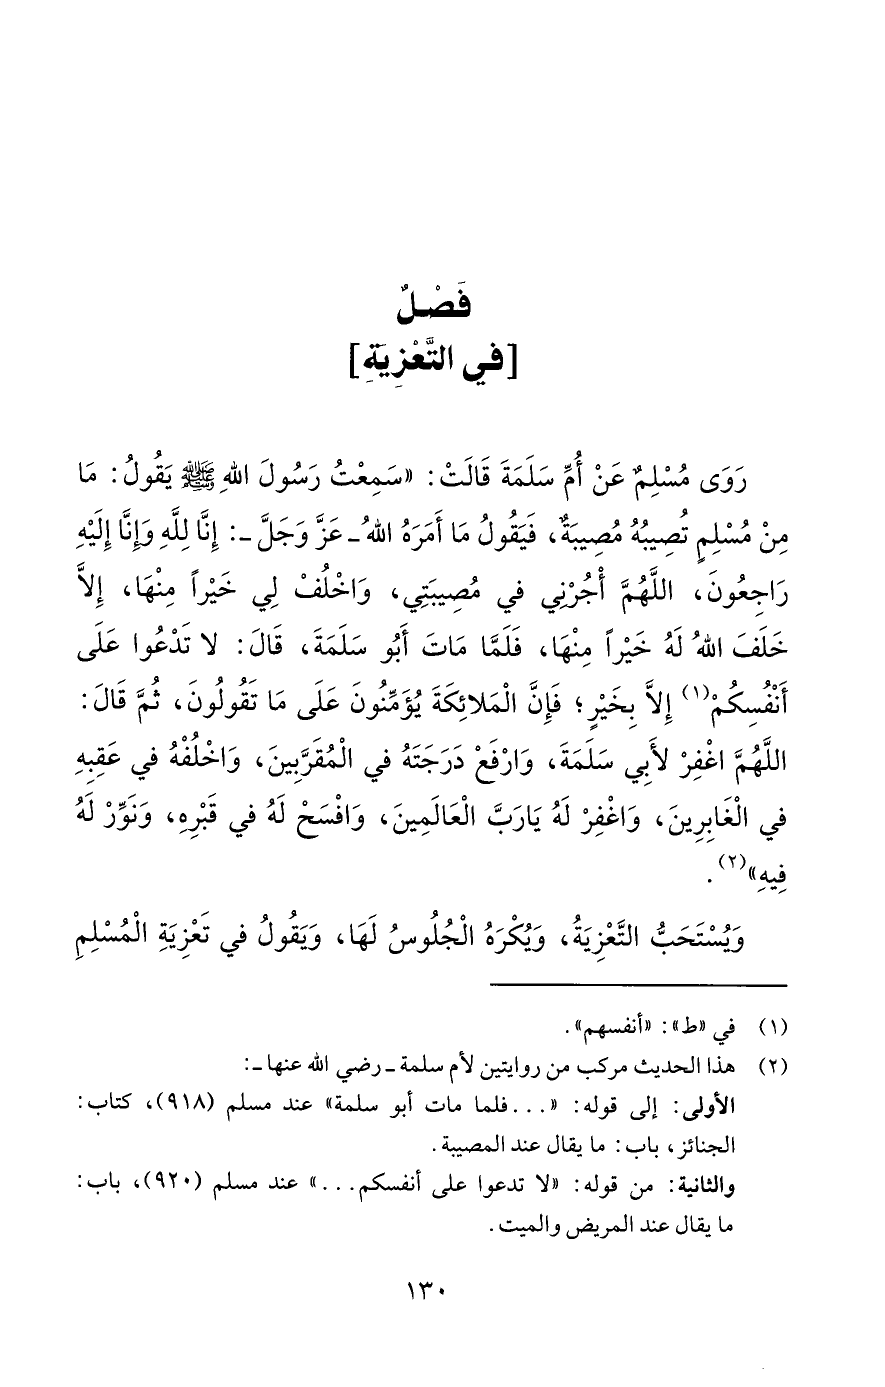 فَصْلٌ
[في التَّعْزِيَةِ]
رَوَى مُسْلِمٌ عَنْ أُمِّ سَلَمَةَ قَالَتْ: «سَمِعْتُ رَسُولَ اللهِ ﷺ يَقُولُ: مَا
مِنْ مُسْلِمٍ تُصِيبُهُ مُصِيبَةٌ، فَيَقُولُ مَا أَمَرَهُ اللهُ ـ عَزَّ وَجَلَّ ـ: إِنَّا لِلَّهِ وَإِنَّا إِلَيْهِ
رَاجِعُونَ، اللَّهُمَّ أْجُرْنِي في مُصِيبَتِي، وَاخْلُفْ لِي خَيْراً مِنْهَا، إِلاَّ
خَلَفَ اللهُ لَهُ خَيْراً مِنْهَا، فَلَمَّا مَاتَ أَبُو سَلَمَةَ، قَالَ: لا تَدْعُوا عَلَى
أَنْفُسِكُمْ(١) إِلاَّ بِخَيْرٍ؛ فَإِنَّ الْمَلائِكَةَ يُؤَمِّنُونَ عَلَى مَا تَقُولُونَ، ثُمَّ قَالَ:
اللَّهُمَّ اغْفِرْ لأَبِي سَلَمَةَ، وَارْفَعْ دَرَجَتَهُ في الْمُقَرَّبِينَ، وَاخْلُفْهُ في عَقِبِهِ
في الْغَابِرِينَ، وَاغْفِرْ لَهُ يَارَبَّ الْعَالَمِينَ، وَافْسَحْ لَهُ في قَبْرِهِ، وَنَوِّرْ لَهُ
فِيهِ»(٢).
وَيُسْتَحَبُّ التَّعْزِيَةُ، وَيُكْرَهُ الْجُلُوسُ لَهَا، وَيَقُولُ في تَعْزِيَةِ الْمُسْلِمِ
(١) في «ط»: «أنفسهم».
(٢) هذا الحديث مركب من روايتين لأم سلمة ـ رضي الله عنها ـ:
الأولى: إلى قوله: «...فلما مات أبو سلمة» عند مسلم (٩١٨)، كتاب:
الجنائز، باب: ما يقال عند المصيبة.
والثانية: من قوله: «لا تدعوا على أنفسكم...» عند مسلم (٩٢٠)، باب:
ما يقال عند المريض والميت.
١٣٠